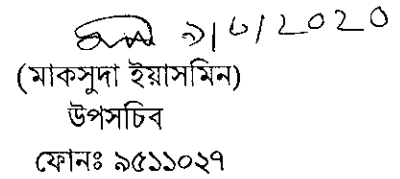 ৯/৬/2020
(মাকসুদা ইয়াসমিন)
উপসচিব
ফোনঃ ৯৫১১০২৭